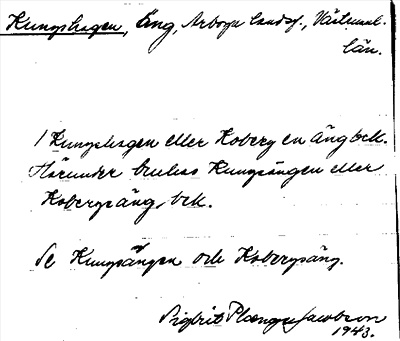 Kungshagen, Äng, Arboga landsf., Västmanl.
län.
1 Kungshagen eller Koberg en äng bek.
Härunder brukas Kungsängen eller
Kobergsäng, bek.
Se Kungsängen och Kobergsäng.
Sigbrit Plænge Jacobson
1943.